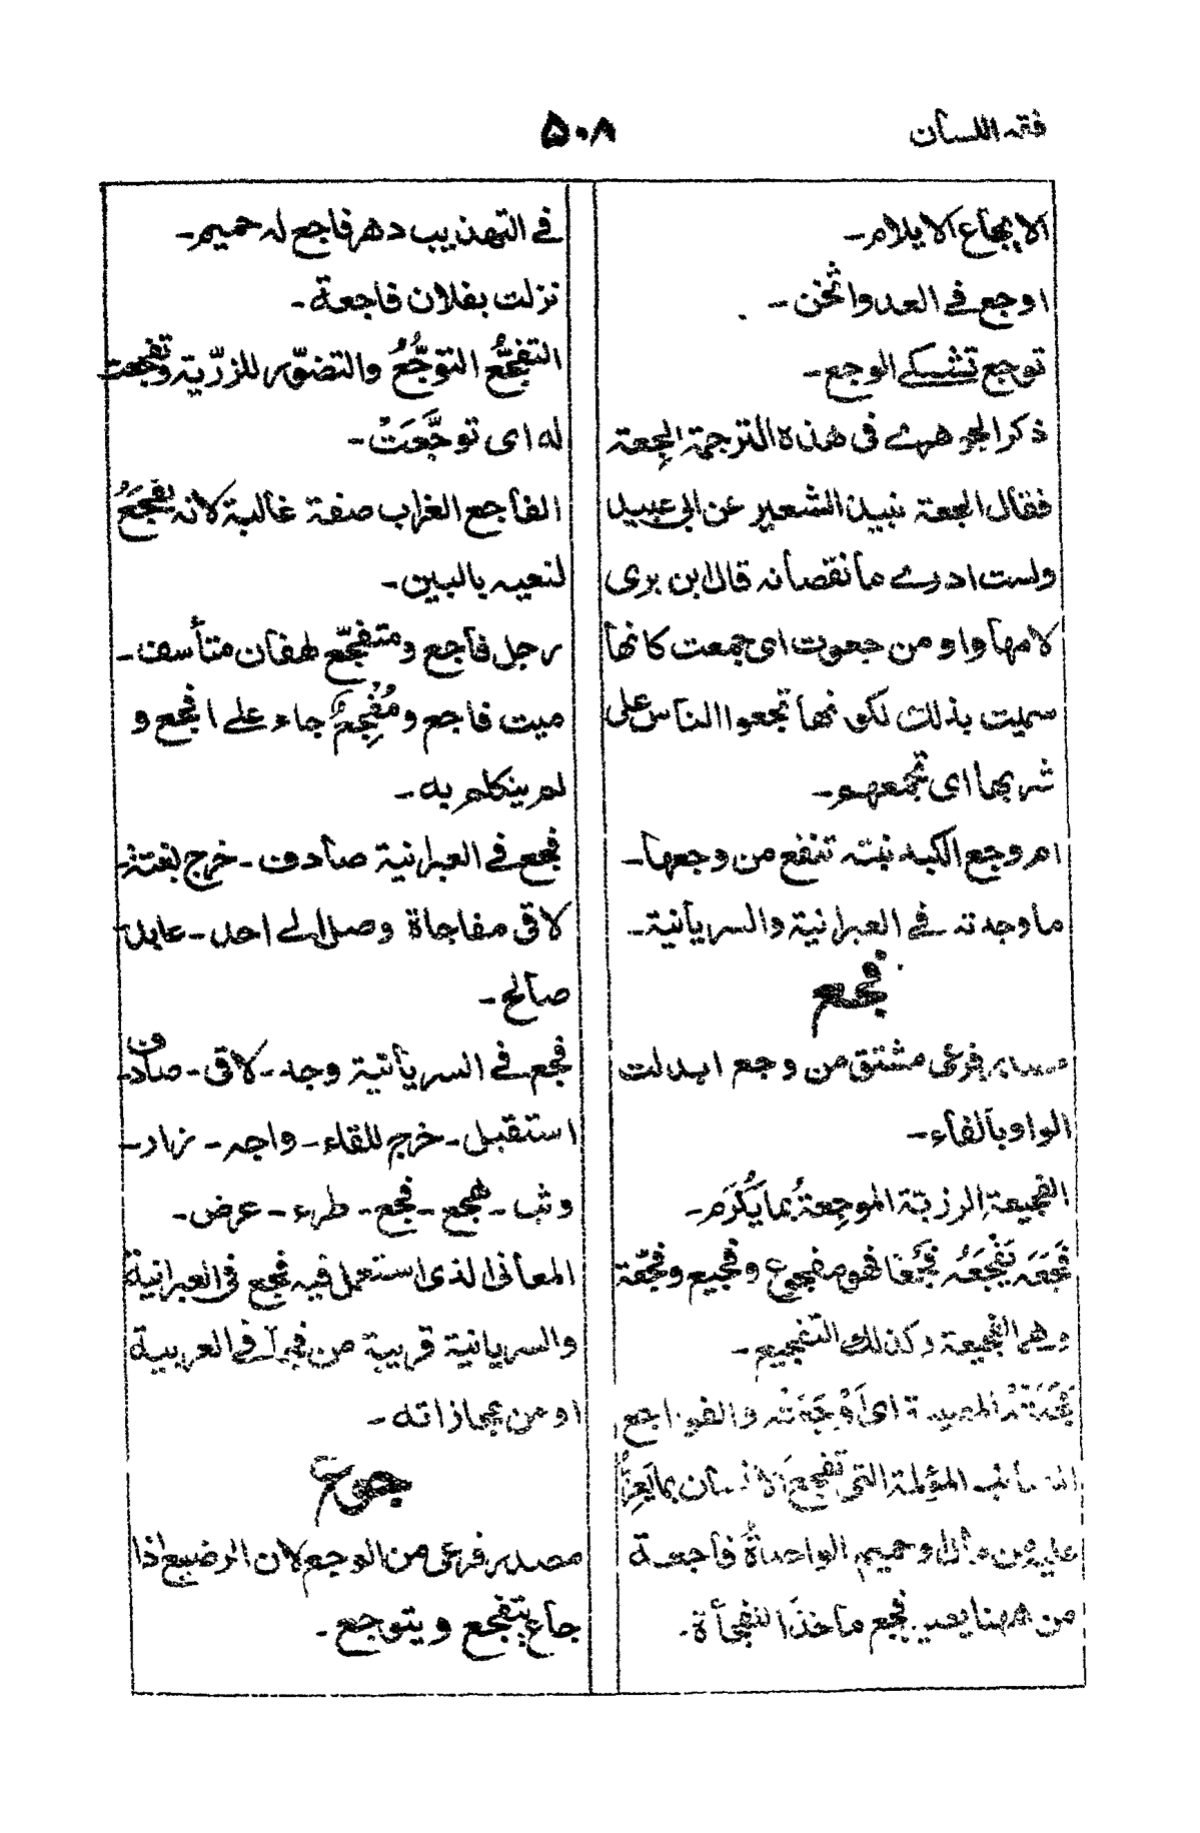 فقه اللسان
۵۰۸
الايجاع الايلام۔
اوجع فے العدو اثخن۔
توجع تشکے الوجع۔
ذكر الجوهرے فى هذه الترجمة الجعة
فقال الجعة نبيذ الشعير عن ابى عبيد
ولست ادرے ما نقصانه قال ابن برى
لامها واو من جعوت اى جمعت كانها
سميت بذلك لكونها تجعوا الناس على
شربها اى تجمعهم۔
ام وجع الكبد نبتة تنفع من وجعها۔
ما وجدته فے العبرانية والسريانية۔
فجع
مصدر فرعى مشتق من وجع ابدلت
الواو بالفاء۔
الفجيعة الرزية الموجِعةُ بما يَكْرُم۔
فَجَعَه يَفْجَعُه فَجْعًا فهو مفجوع وفجيع وفجّعة
وهى الفجيعة وكذلك التفجيع۔
فَجَعَتْهُ المصيبة اى اَوْجَعَتْه والفواجع
المصائب المؤلمة التى تفجعَ الانسان بما يَعِزُّ
عليه من مال او حميم الواحدةُ فاجعة
من ههنا يصير فجع ماخذًا لفجأة۔
فے التهذيب دهر فاجع له حميم۔
نزلت بفلان فاجعة۔
التفجُّع التوجُّعُ والتضوّر للرزّية وتفجعت
له اى توجَّعَتْ۔
الفاجع الغراب صفة غالبة لانه يفجَعُ
لنعيه بالبين۔
رجل فاجع ومتفجّع لهفان متأسف۔
ميت فاجع ومُفْجِعٌ جاء علے افجع و
لم يتكلم به۔
فجع فے العبرانية صادف۔ خرج بغتةً۔
لاقى مفاجاة وصل الے احد۔ عامل۔
صالح۔
فجع فے السريانية وجد۔ لاقى۔ صادف۔
استقبل۔ خرج للقاء۔ واجه۔ زاد۔
وثب۔ هجع۔ فجع۔ طرء۔ عرض۔
المعانى الذى استعمل فيه فجع فى العبرانية
والسريانية قريبة من فجأ فے العربية
او من مجازاته۔
جوع
مصدر فرعى من الوجع لان الرضيع اذا
جاع يتفجع ويتوجع۔